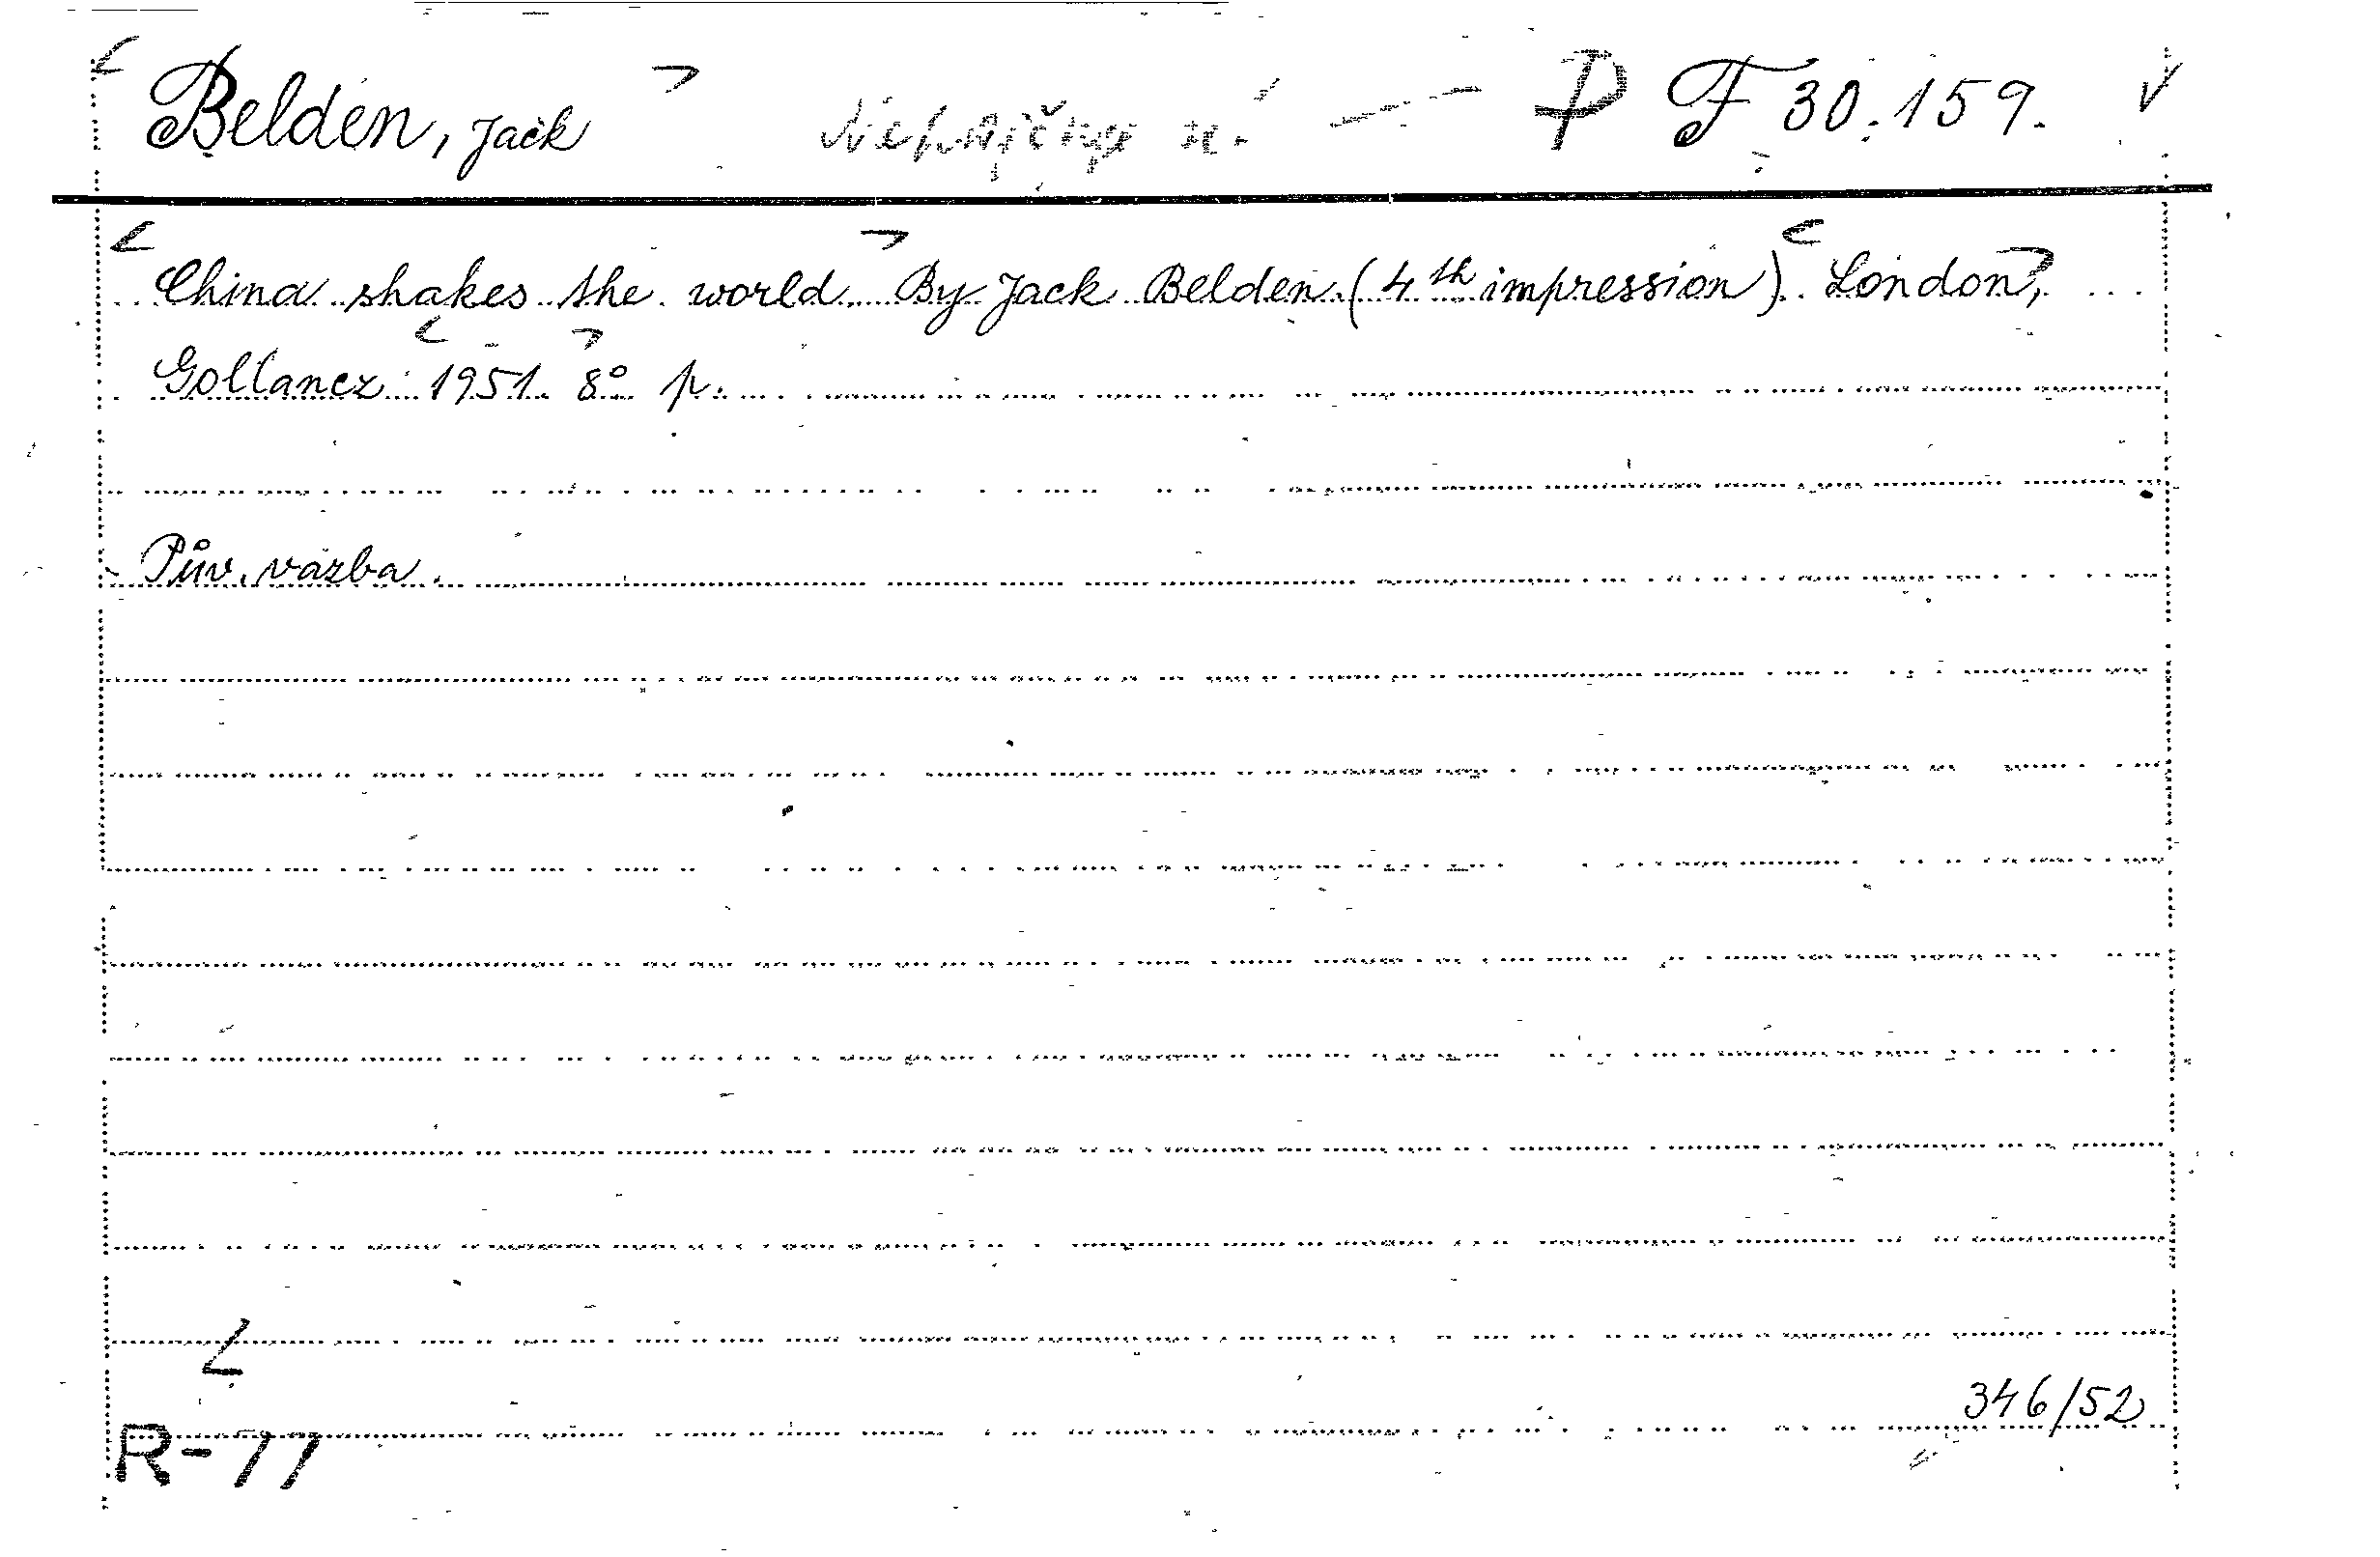 Belden, Jack P F 30.159.
China shakes the world. By Jack Belden. (4th impression). London,
Gollancz 1951. 8° p.
Pův. vazba.
346/52
R-77